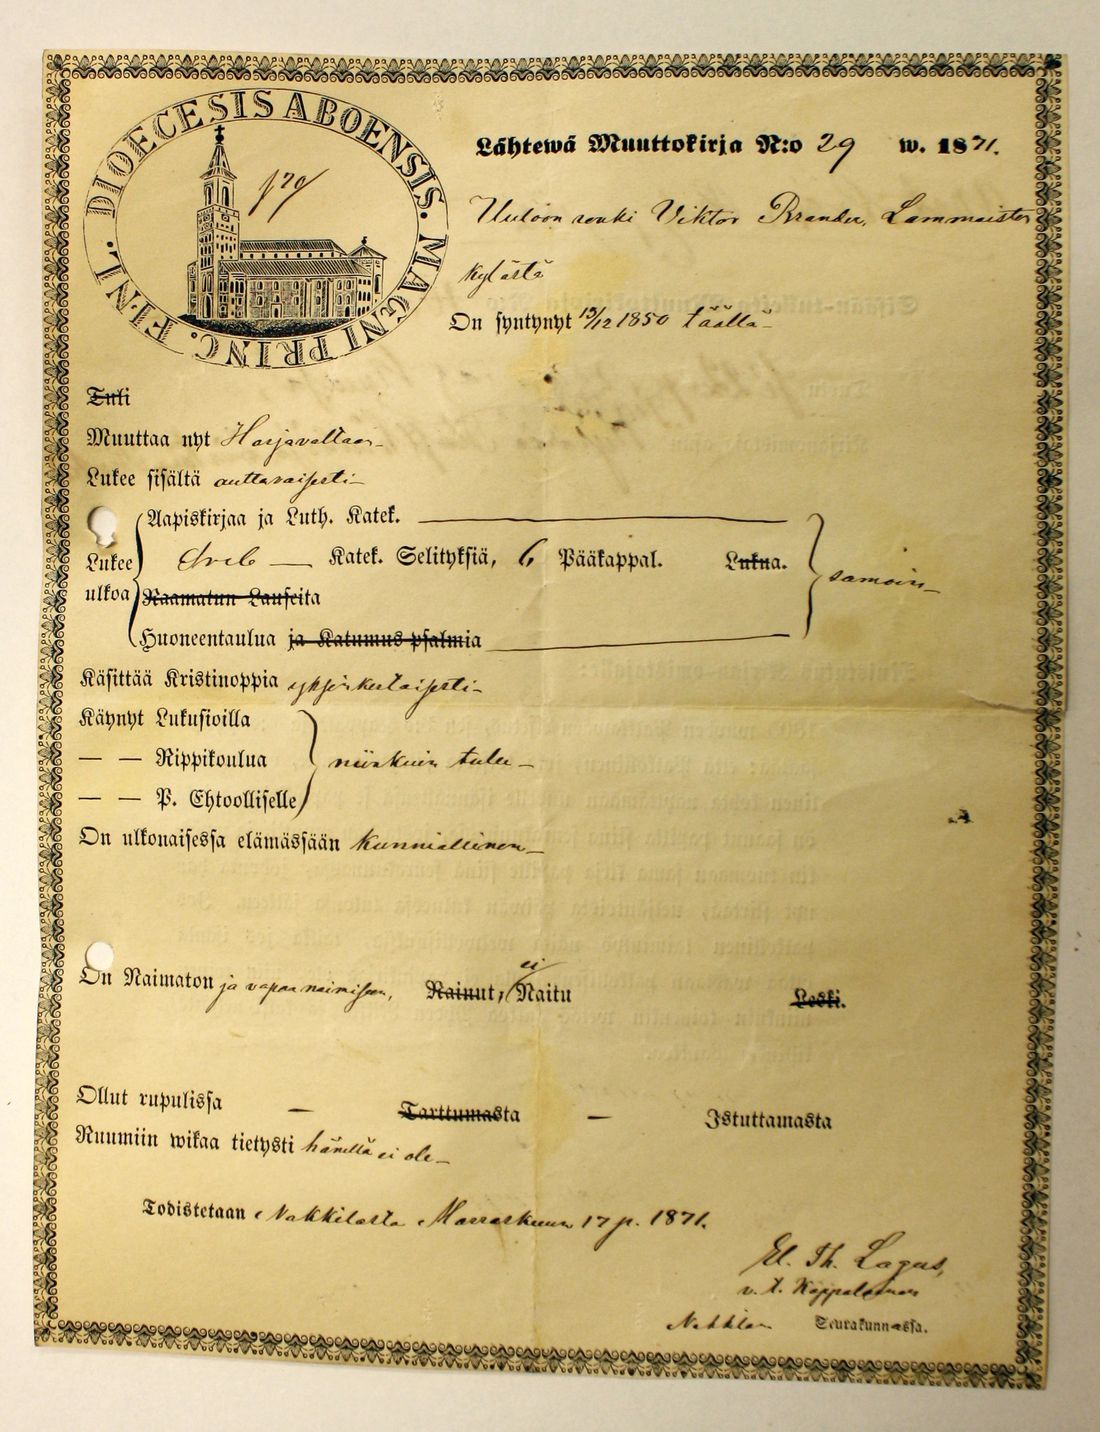 DIOECESIS ABOENSIS. MAGNI PRINC. FINL.
170/
Lähtewä Muuttokirja N:o 29 w. 1871.
renki Viktor Brander, Lammaisten
kylästä
On syntynyt 13/12 1850 täällä
Tuli
Muuttaa nyt Harjavaltaan
Lukee sisältä auttavaisesti
Aapiskirjaa ja Luth. Katek.
Lukee ulkoa
Katek. Selityksiä, 6 Pääkappal. Lukua.
samoin
Raamatun Lauseita
Huoneentaulua ja Katumus psalmia
Käsittää Kristinoppia yksinkertaisesti
Käynyt Lukusioilla
— — Rippikoulua niinkuin tulee
— — P. Ehtoolliselle
On ulkonaisessa elämässään kunniallinen
On Naimaton ja vapaa naimiseen, Nainut, ei Naitu Leski.
Ollut rupulissa — Tarttumasta — Istuttamasta
Ruumiin wikaa tietysti hänellä ei ole
Todistetaan Nakkilasta Marraskuun 17 p. 1871.
El. Th. Lagus,
v. t. Kappalainen
Nakkilan Seurakunnassa.